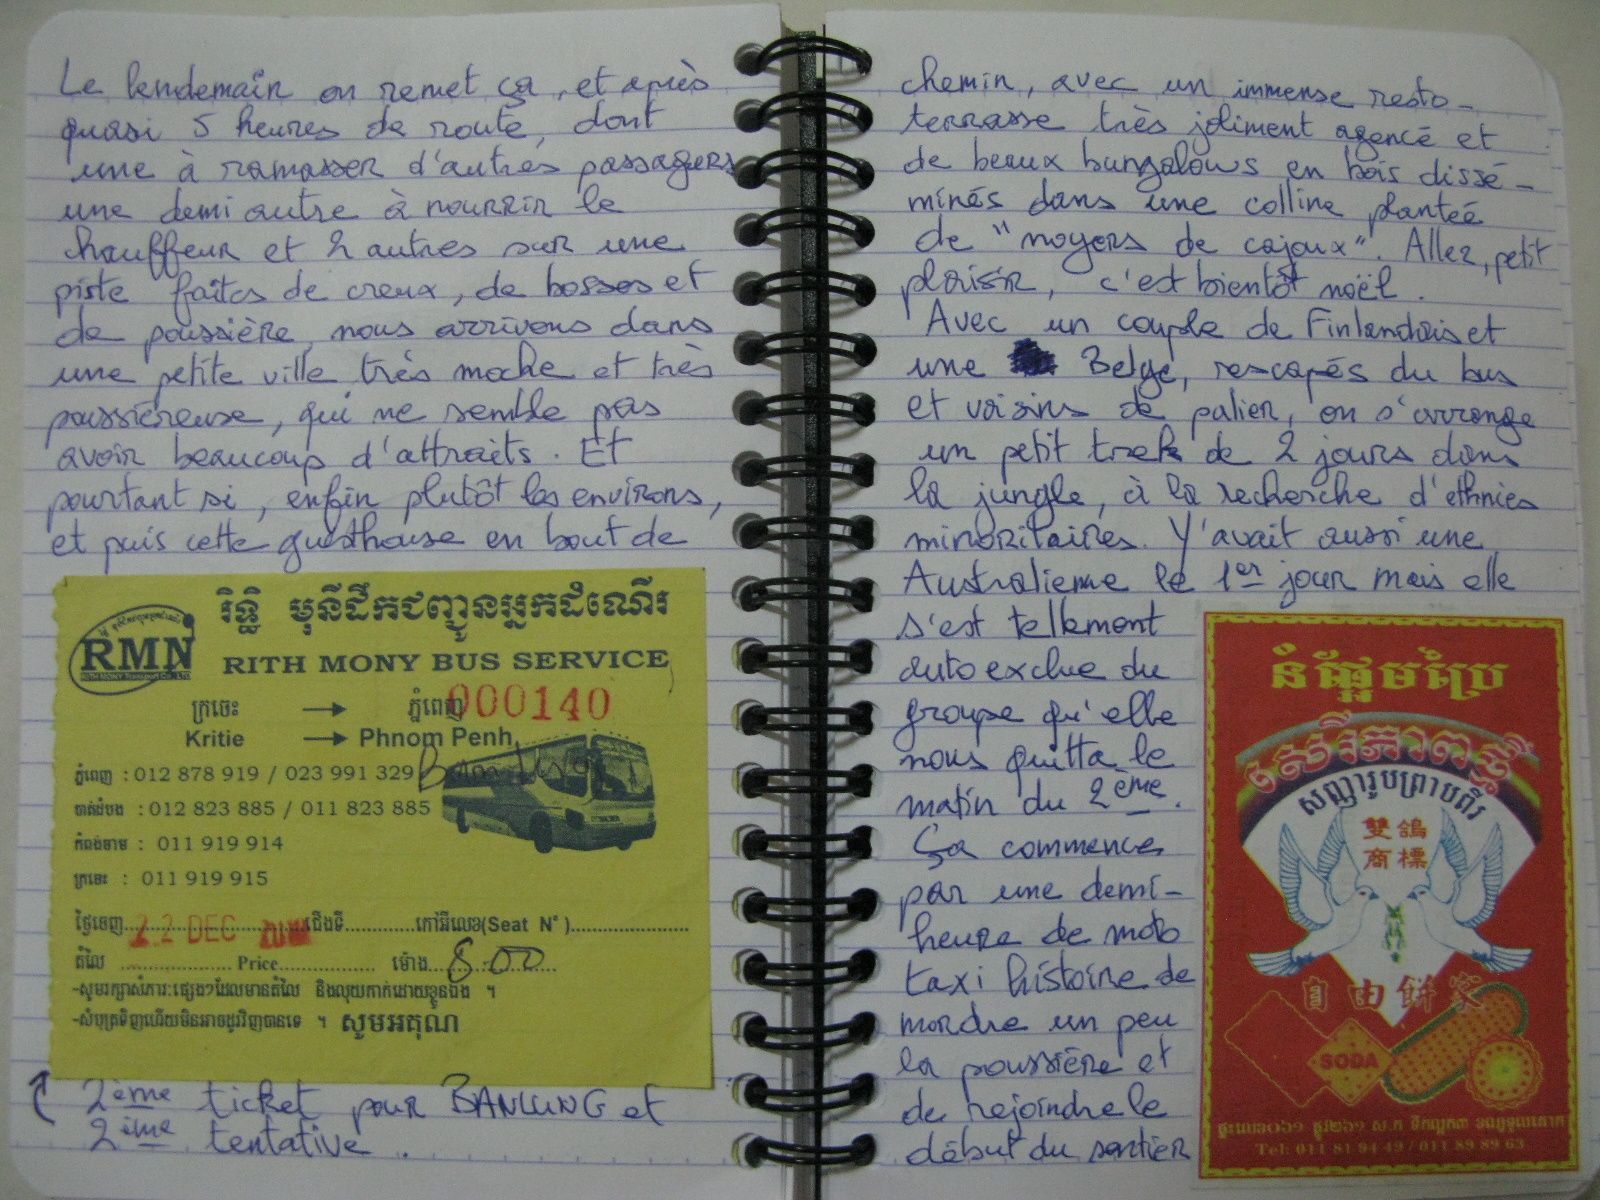 Le lendemain on remet ça, et après
quasi 5 heures de route, dont
une à ramasser d'autres passagers
une demi autre à nourrir le
chauffeur et 2 autres sur une
piste faites de creux, de bosses et
de poussière, nous arrivons dans
une petite ville très moche et très
poussiéreuse, qui ne semble pas
avoir beaucoup d'attraits. Et
pourtant si, enfin plutôt les environs,
et puis cette guesthouse en bout de
រិទ្ធិ មុនីដឹកជញ្ជូនអ្នកដំណើរ
RMN
RITH MONY Transport Co., LTD
RITH MONY BUS SERVICE
ក្រចេះ → ភ្នំពេញ 000140
Kritie → Phnom Penh
ភ្នំពេញ : 012 878 919 / 023 991 329
បាត់ដំបង : 012 823 885 / 011 823 885
កំពង់ចាម : 011 919 914
ក្រចេះ : 011 919 915
ថ្ងៃចេញ 22 DEC ជើងទី កៅអីលេខ(Seat N°)
តំលៃ Price ម៉ោង 8.00
-សូមរក្សាសំភារៈផ្សេងៗដែលមានតំលៃ និងលុយកាក់ដោយខ្លួនឯង ។
-សំបុត្រទិញហើយមិនអាចដូរវិញបានទេ ។ សូមអរគុណ
2ème ticket pour BANLUNG et
2ème tentative.
chemin, avec un immense resto-
terrasse très joliment agencé et
de beaux bungalows en bois dissé-
minés dans une colline plantée
de "noyers de cajoux". Allez, petit
plaisir, c'est bientôt noël.
Avec un couple de Finlandais et
une Belge, rescapés du bus
et voisins de palier, on s'arrange
un petit trek de 2 jours dans
la jungle, à la recherche d'ethnies
minoritaires. Y'avait aussi une
Australienne le 1er jour mais elle
s'est tellement
auto exclue du
groupe qu'elle
nous quitta le
matin du 2ème.
Ça commence
par une demi-
heure de moto
taxi histoire de
mordre un peu
la poussière et
de rejoindre le
début du sentier
នំផ្អែមប្រៃ
សេរីភាពថ្មី
សញ្ញារូបព្រាបពីរ
雙鴿
商標
自由餅家
SODA
Tel: 011 81 94 49 / 011 89 89 63